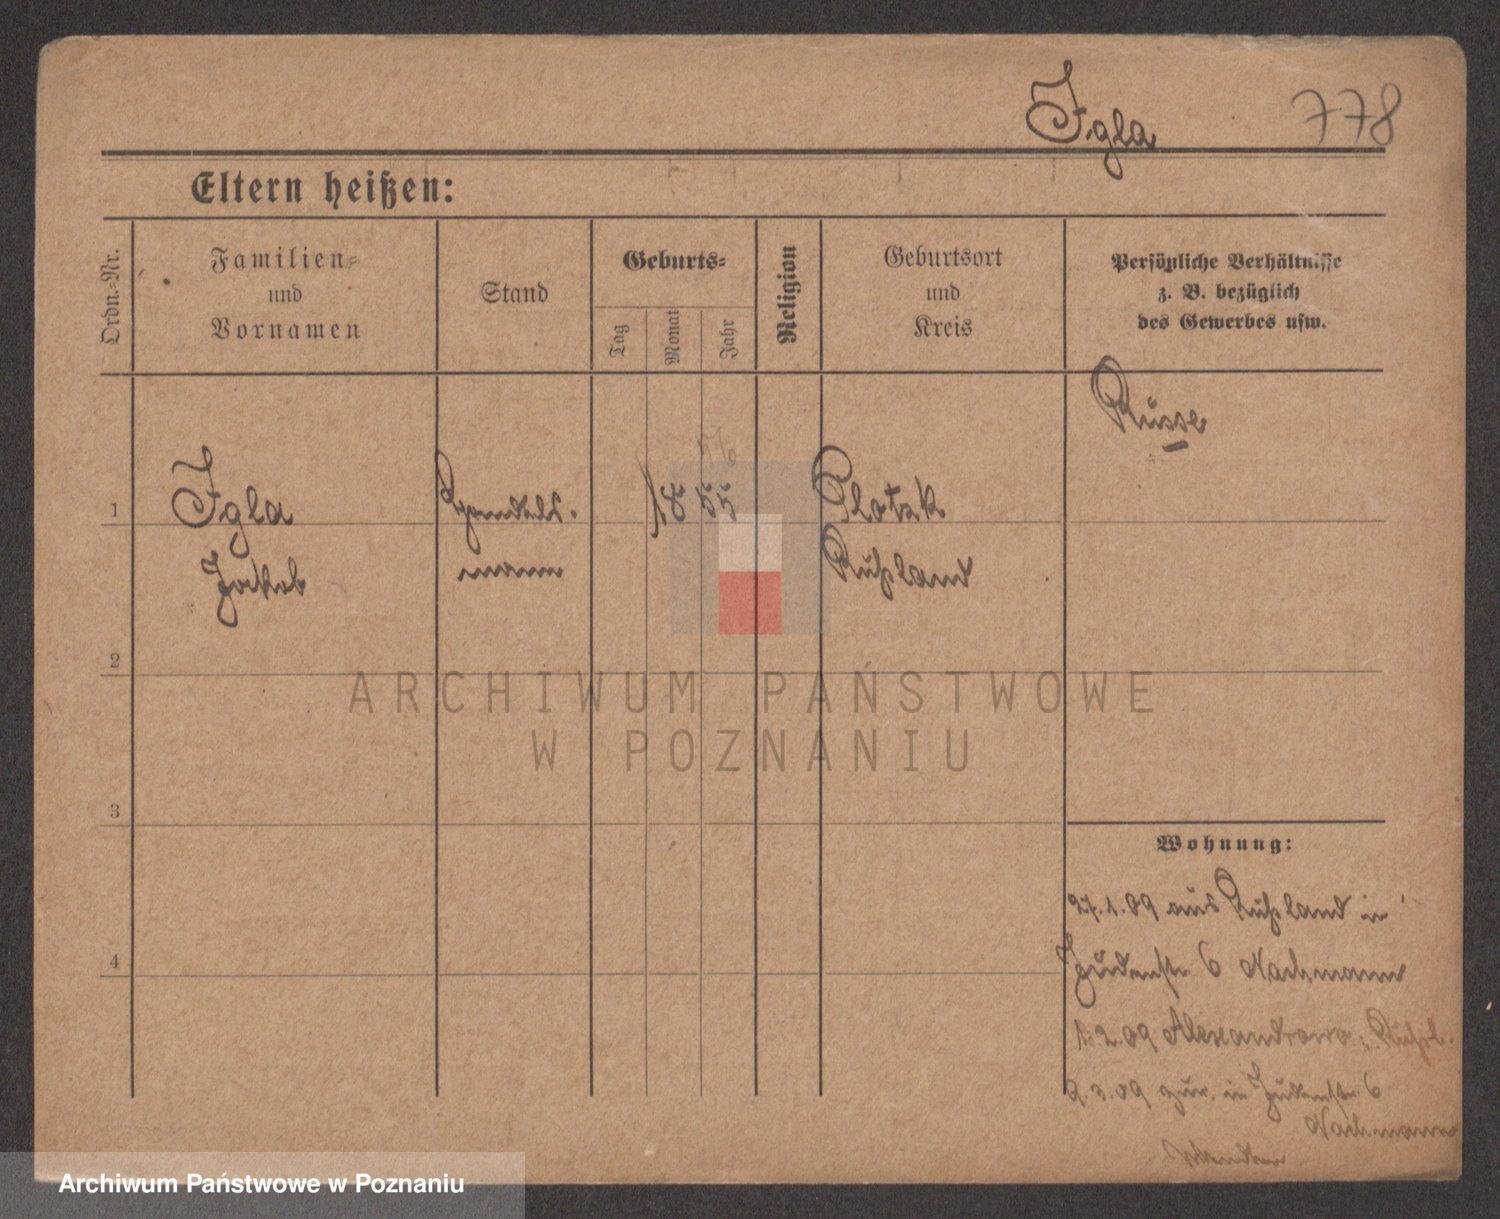 Igla 778
Eltern heißen:
Ordn.-Nr.
Familien-
und
Vornamen
Stand
Geburts-
Tag
Monat
Jahr
Religion
Geburtsort
und
Kreis
Persönliche Verhältnisse
z. B. bezüglich
des Gewerbes usw.
Russe
56
1 Igla Handels. 18 55 Plotzk
Jakob mann Rußland
2
3
4
Wohnung:
27.1.09 aus Rußland in
Judenstr 6 Nachmann
1.2.09 Alexandrowo, Rußl.
9.3.09 zur. in Judenstr 6
Nachmann
ARCHIWUM PAŃSTWOWE
W POZNANIU
Archiwum Państwowe w Poznaniu